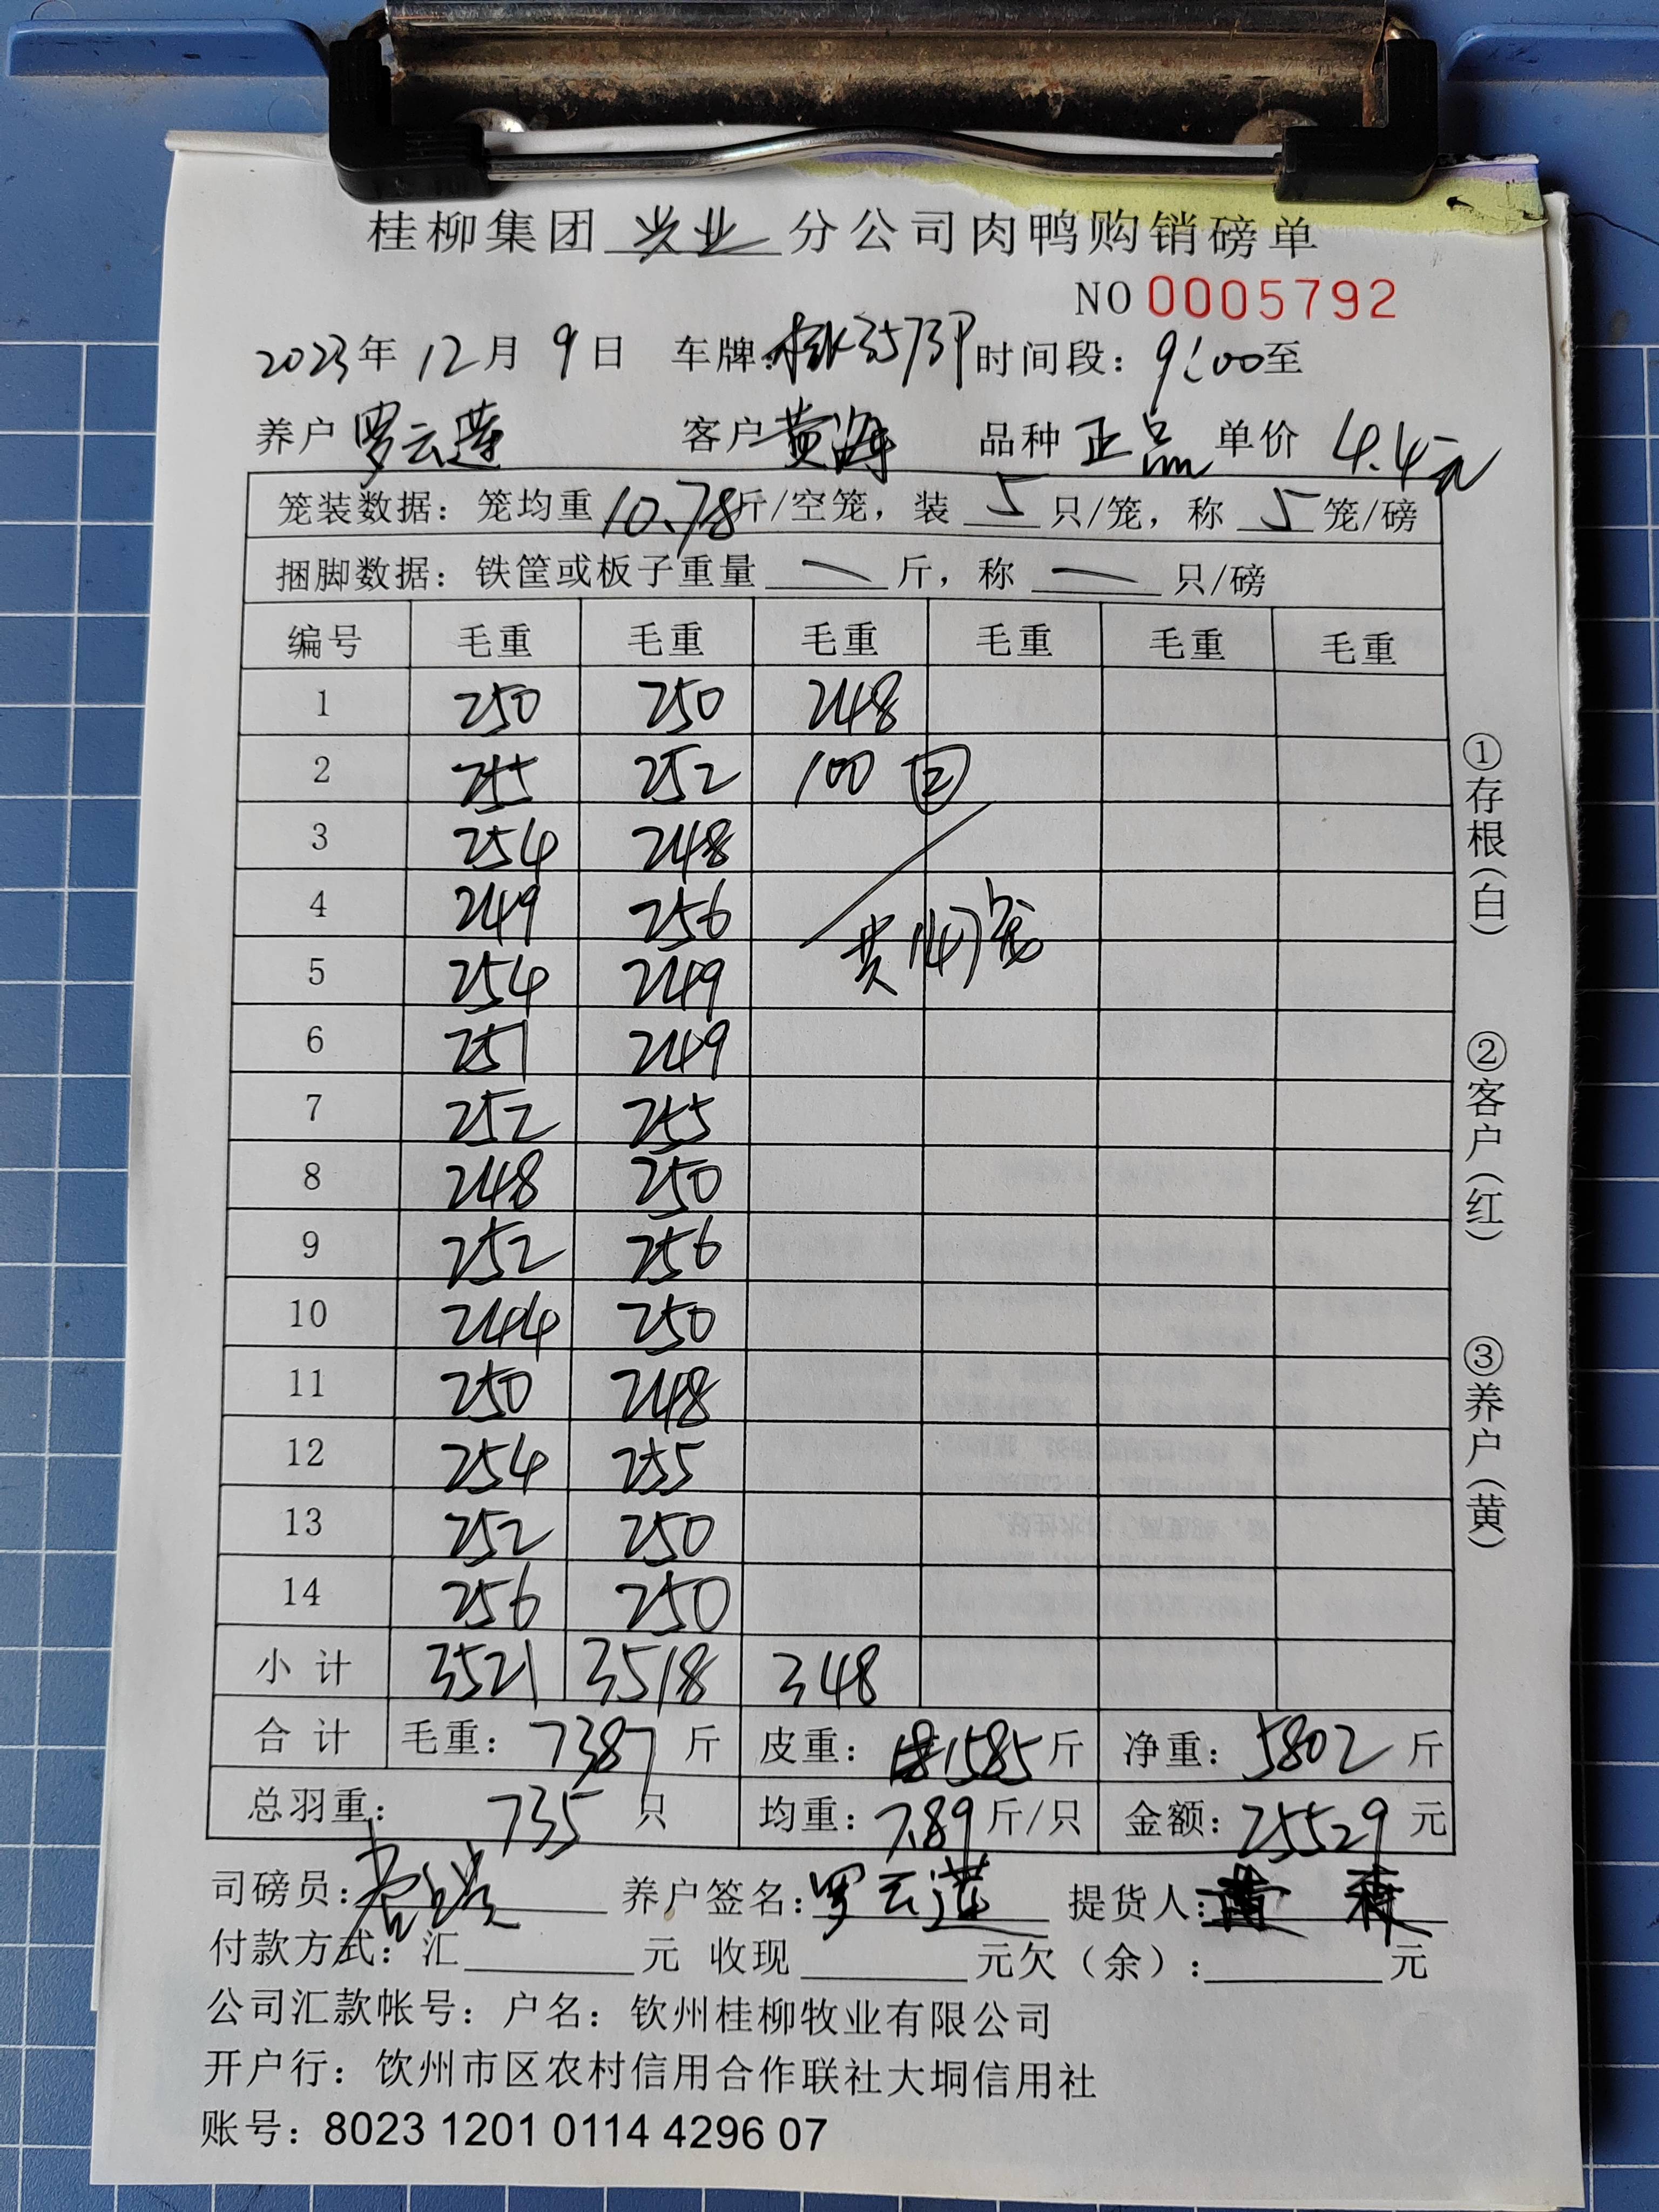 桂柳集团 兴业 分公司肉鸭购销磅单
NO 0005792
2023年 12月 9日 车牌:桂K3573P 时间段:9:00至
养户 罗云莲 客户 黄海 品种 正品 单价 4.4元
笼装数据:笼均重10.78斤/空笼,装 5 只/笼,称 5 笼/磅
捆脚数据:铁筐或板子重量 — 斤,称 — 只/磅
编号 毛重 毛重 毛重 毛重 毛重 毛重
1 250 250 248
2 255 252 100 ②
3 254 248
4 249 256
共147笼
5 254 249
6 251 249
7 252 255
8 248 250
9 252 256
10 244 250
11 250 248
12 254 255
13 252 250
14 256 250
小计 3521 3518 348
合计 毛重:7387 斤 皮重:1585斤 净重:5802 斤
总羽重:735 只 均重:7.89斤/只 金额:25529 元
司磅员: 养户签名:罗云莲 提货人:黄 森
付款方式:汇 元 收现 元欠(余): 元
公司汇款帐号:户名:钦州桂柳牧业有限公司
开户行:饮州市区农村信用合作联社大垌信用社
账号:8023 1201 0114 4296 07
①存根(白)
②客户(红)
③养户(黄)